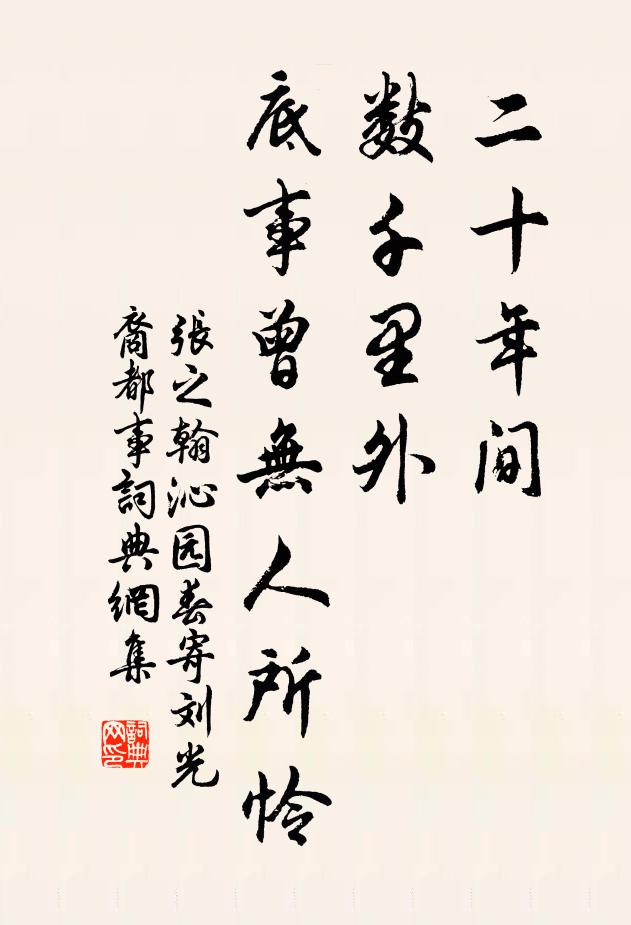 二十年间
数千里外
底事曾無人所怜
張之翰沁园春寄刘光
裔都事詞典網集
詞典网印